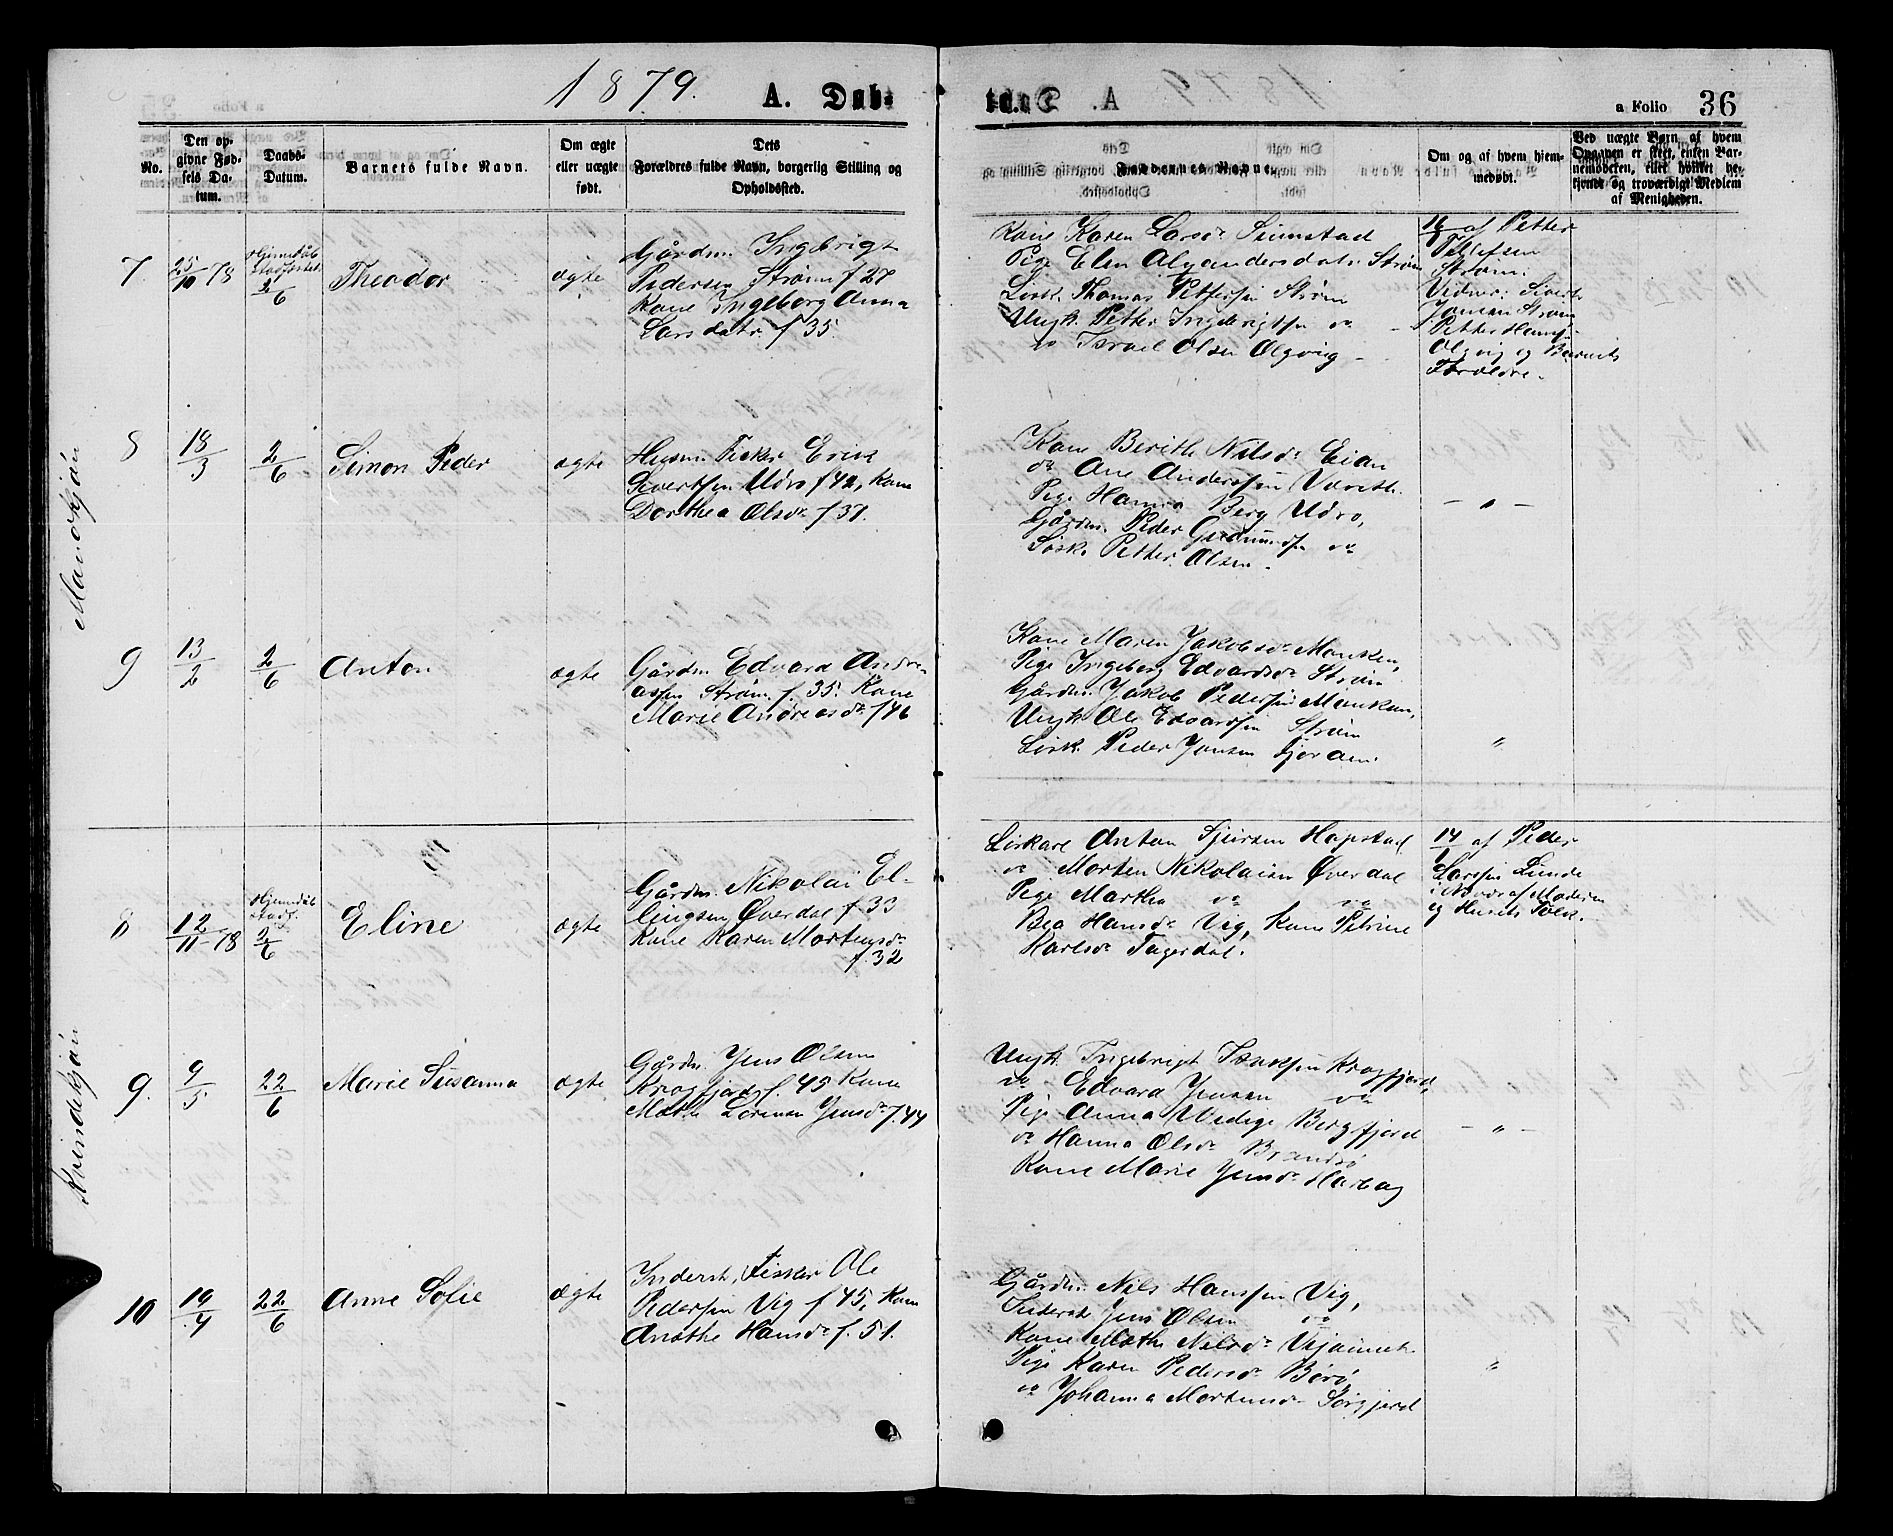 1879.
A. Dåb.
a Folio 36
No.
Den opgivne Fødsels Datum.
Daabs-Datum.
Barnets fulde Navn.
Om ægte eller uægte født.
Dets Forældres fulde Navn, borgerlig Stilling og Opholdssted.
Faddernes Navne.
Om og af hvem hjemmedøbt.
Ved uægte Børn af hvem Opgaven er skeet, enten Barnemoderen, eller hvilket befjendt og troværdigt Medlem af Menigheden.
Mandkjøn
7.
25/10 78
Hjemdøb
stadfæstet
2/6
Theodor
ægte
Gårdm. Ingebrigt
Pedersen Strøm f 27
Kone Ingeborg Anna
Larsdatr. f 35.
Kone Karen Larsdr
Pige Elen Alexandersdatr. Strøm
Losk. Thomas Pettersen Strøm
Ungk. Petter Ingebrigtsen do
do Israel Olsen Olgvig
af Petter
Strøm.
Vidner: Sivert
Jonsen Strøm
Petter Hans
Olgvig og Barnets
Forældre.
8
18/3
2/6
Simon Peder
ægte
Husm. Fisker Erik
Sivertsen Udro f 42, Kone
Dorthea Olsdr f 37.
Kone Berith Nilsdr Eian
do Ane Anderssen
Pige Hanna Berg Udro,
Gårdm. Peder Gudmundsen do
Losk. Petter Olsen
— " —
9
13/2
2/6
Anton
ægte
Gårdm. Edvard Andre-
assen Strøm f. 35. Kone
Marie Andreasdr f 46
Kone Maren Jakobsdr Monken,
Pige Ingeborg Edvardsdr Strøm
Gårdm. Jakob Pedersen Monken,
Ungk Ole Edvardsen Strøm
Losk. Peder Jonsen Fjorden.
"
Kvindekjøn
8
12/11-78
Hjemdøb
stadf.
2/6
Eline
ægte
Gårdm. Nikolai El-
lingsen Øverdal f 33
Kone Karen Mortensdr
f. 32
Loskare Anton Sjursen Hopstad
do Morten Nikolaisen Øverdal
Pige Martha do do
Bea Hansdr Vig, Kone Petrine
Karlsdr Fagerdal.
14/1 af Peder
Larssen Lunde
i Nærvær af Moderen
og Husets Folk.
9.
9/5
22/6
Marie Susanna
ægte
Gårdm. Jens Olsen
Krogfjord f. 45 Kone
Jensdr f. 44
Ungk. Ingebrigt Krogfjord,
do Edvard Jensen do
Pige Anna Wedege Bergfjord
do Hanna Olsdr Brandsø
Kone Marie Jensdr Harbag
— " —
10
19/4
22/6
Anne Sofie
ægte
Inderst, Fisker Ole
Pedersen Vig f 45, Kone
Anethe Hansdr f. 51.
Gårdm. Nils Hanssen Vig,
Inderst Jens Olsen do
Kone Nilsdr
Pige Karen Pedersdr Børø
do Johanna Mortensdr Sørgjerd
"